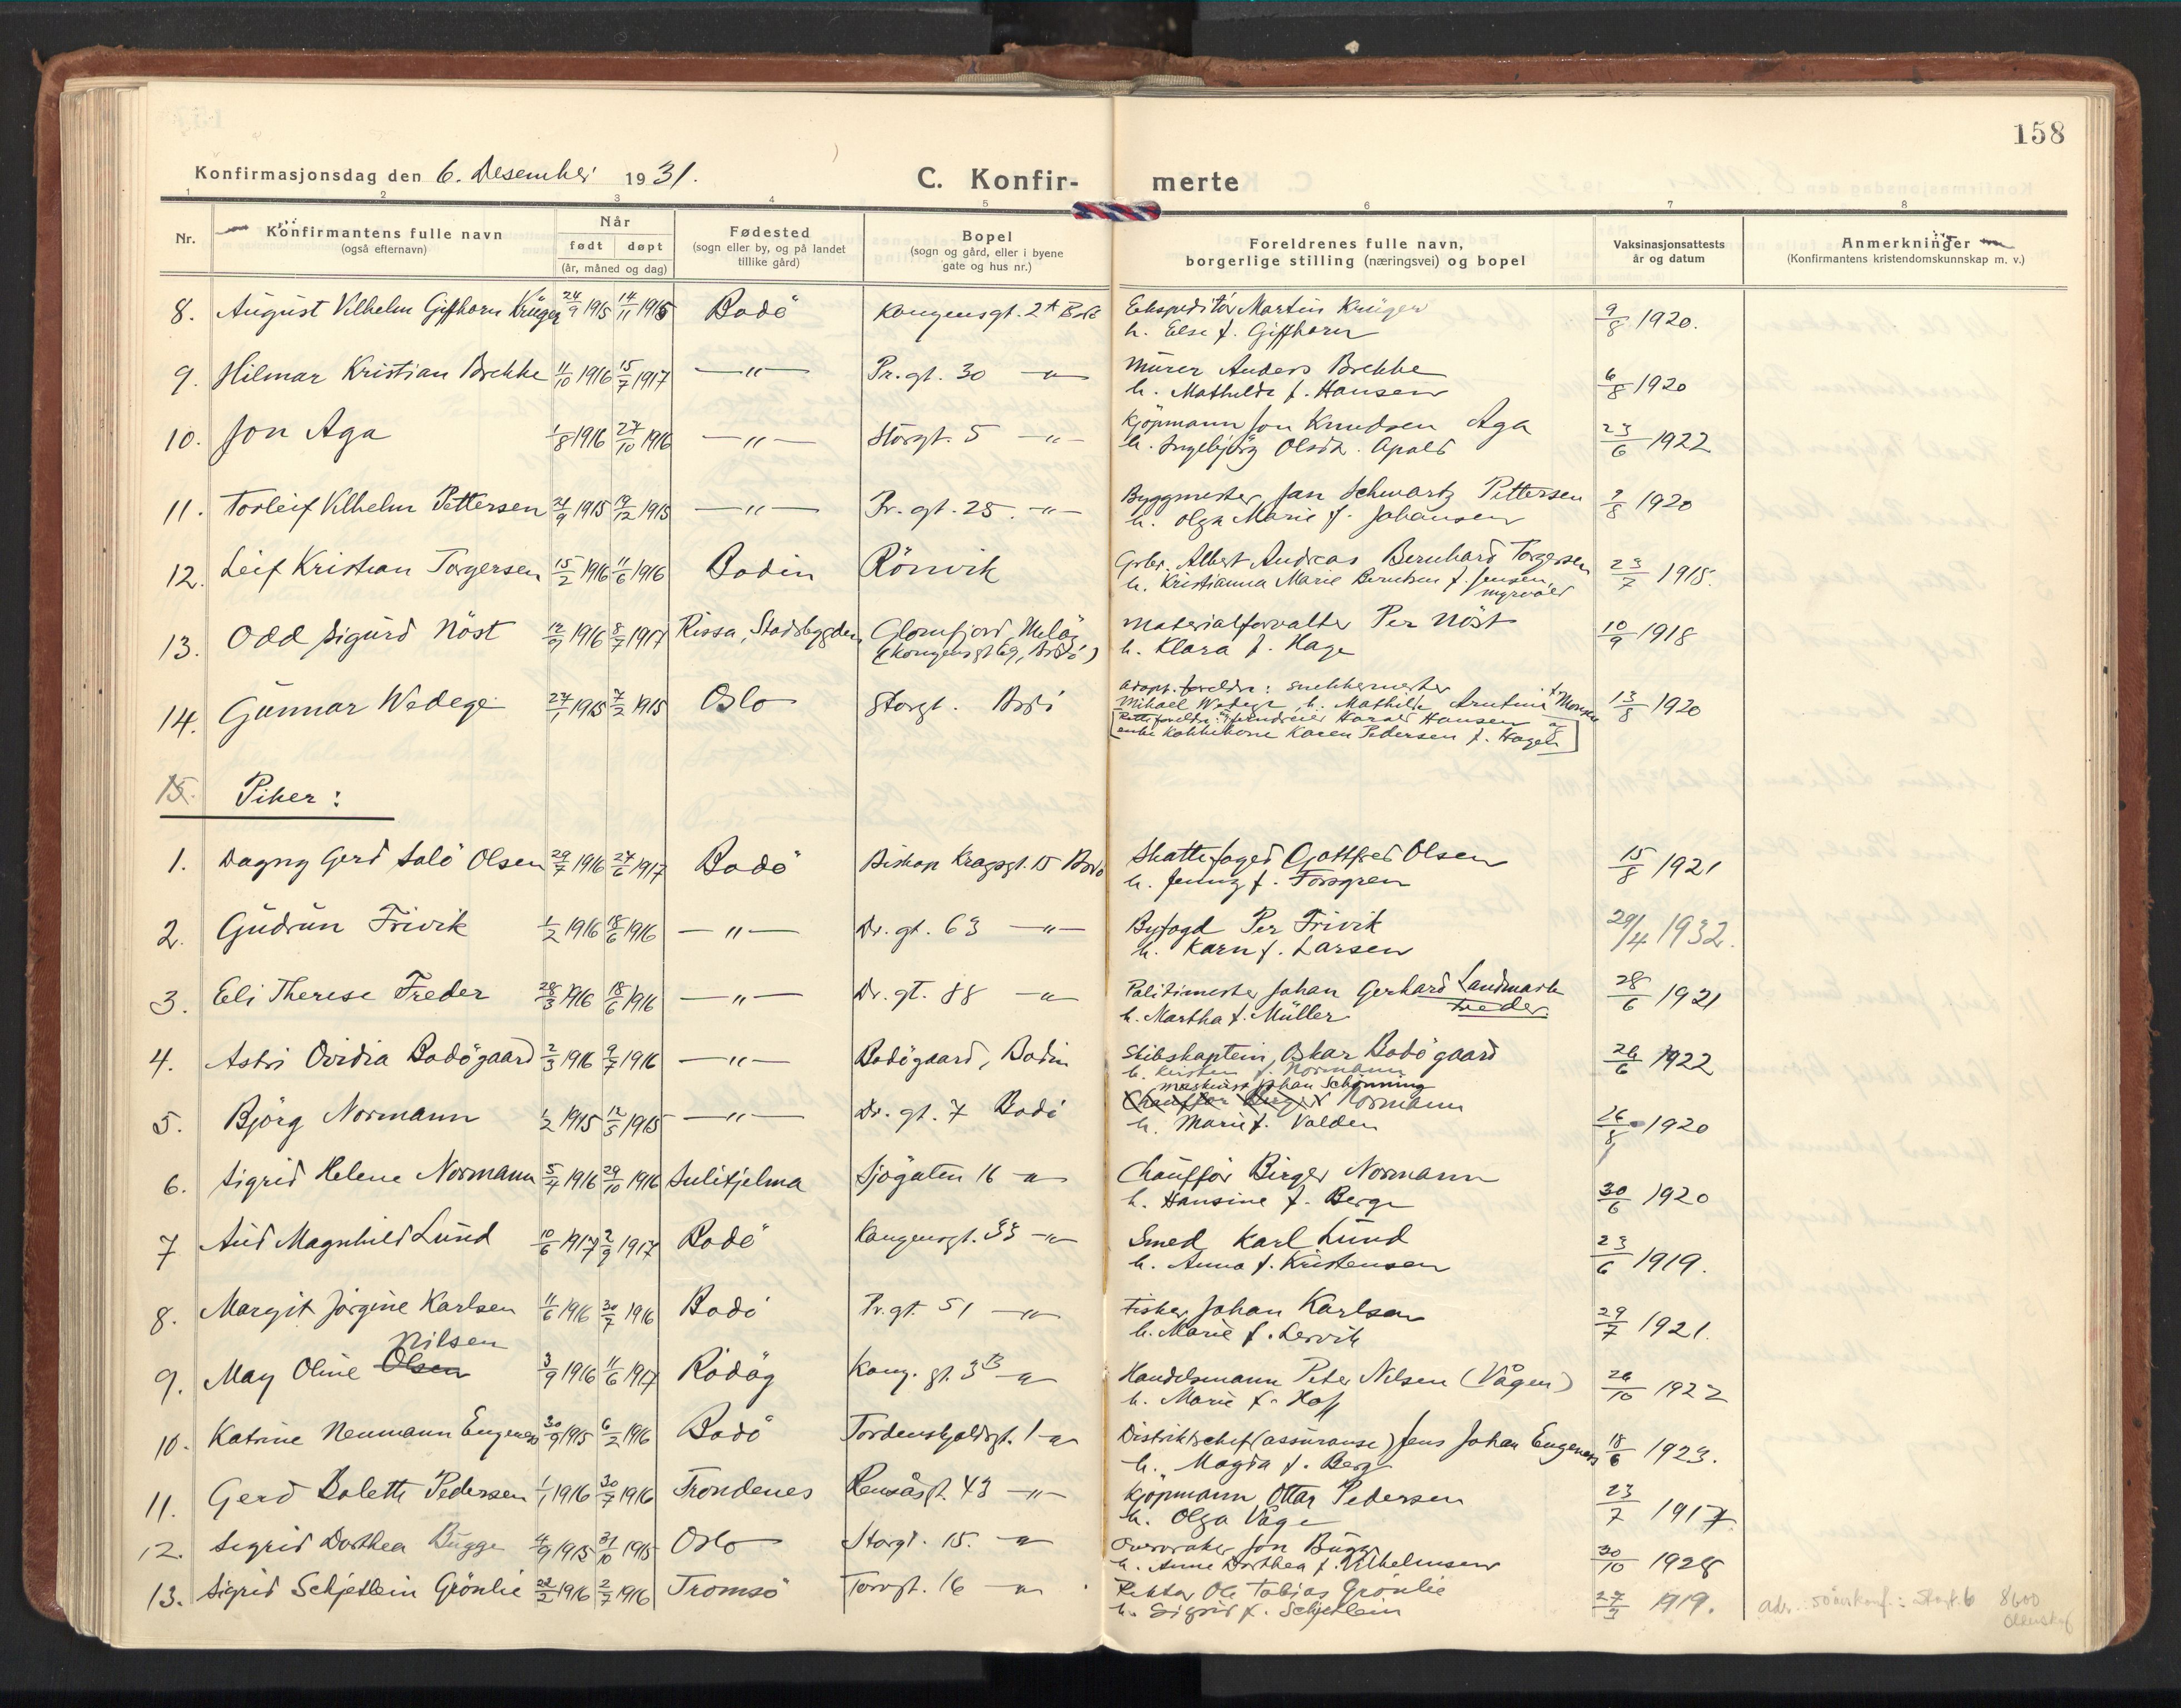 158
Konfirmasjonsdag den 6. Desember 1931.
C. Konfir- merte
1 2 3 4 5 6 7 8
Nr.
Konfirmantens fulle navn
(også efternavn)
Når
født døpt
(år, måned og dag)
Fødested
(sogn eller by, og på landet
tillike gård)
Bopel
(sogn og gård, eller i byene
gate og hus nr.)
Foreldrenes fulle navn,
borgerlige stilling (næringsvei) og bopel
Vaksinasjonsattests
år og datum
Anmerkninger
(Konfirmantens kristendomskunnskap m. v.)
8. August Vilhelm Giffhorn Krüger 24/9 1915 14/11 1915 Bodö Kongensgt. 2A Bodö Ekspeditör Martin Krüger 9/8 1920.
h. Else f. Giffhorn
9. Hilmar Kristian Brekke 11/10 1916 15/7 1917 —"— Pr.gt. 30 —"— Murer Anders Brekke 6/8 1920
h. Mathilde f. Hansen
10. Jon Aga 1/8 1916 27/10 1916 —"— Storgt. 5 —"— Kjöpmann Jon Knudsen Aga 23/6 1922
h. Ingebjörg Olsdr. Apold
11. Torleif Vilhelm Pettersen 21/9 1915 19/12 1915 —"— Pr.gt. 25. —"— Byggmester Jan Schwartz Pettersen 9/8 1920
h. Olga Marie f. Johansen
12. Leif Kristian Torgersen 15/2 1916 11/6 1916 Bodin Rönvik Grbr. Albert Andreas Bernhard Torgersen 23/7 1918.
h. Kristianna Marie Berntsen f. Jensen,
Myrvold
13. Odd Sigurd Nöst 1916 8/7 1917 Rissa, Stadsbygden Glomfjord, Melöy Materialforvalter Per Nöst 10/9 1918
(Kongensgt 69, Bodö) h. Klara f. Hage
14. Gunnar Wedege 27/1 1915 7/2 1915 Oslo Storgt. Bodö Adopt. foreldre: snekkermester 13/8 1920
Mikael Wedege, h. Mathilde Arntine f. Monsen
[Rette foreldre: Harald Hansen og
enke Karen Pedersen f. Hagen]
15. Piker:
1. Dagny Gerd Salö Olsen 29/7 1916 27/6 1917 Bodö Biskop Kragsgt. 15 Bodö Skattefoged Gottfred Olsen 15/8 1921
h. Jenny f. Forsgren
2. Gudrun Frivik 1/2 1916 18/6 1916 —"— Dr. gt. 63 —"— Byfogd Per Frivik 29/4 1932.
h. Karn f. Larsen
3. Eli Therese Freder 28/3 1916 18/6 1916 —"— Dr. gt. 88 —"— Politimester Johan Gerhard Landmark 28/6 1921
h. Martha f. Müller Freder
4. Astri Ovidia Bodögaard 2/3 1916 9/7 1916 —"— Bodögaard, Bodin Skibskaptein, Oskar Bodögaard 26/6 1922
h. Kirsten f. Normann
maskinist Johan Schönning
5. Björg Normann 1/2 1915 12/5 1915 —"— Dr. gt. 7 Bodö Chaufför Birger Normann 26/8 1920
h. Marie f. Valden
6. Sigrid Helene Normann 5/4 1916 29/10 1916 Sulitjelma Sjögaten 16 —"— Chaufför Birger Normann 30/6 1920
h. Hansine f. Berge
7 Aud Magnhild Lund 10/6 1917 2/9 1917 Bodö Kongensgt. 33 —"— Smed Karl Lund 23/6 1919.
h. Anna f. Kristensen
8. Margit Jörgine Karlsen 11/6 1916 30/7 1916 Bodö Pr.gt. 51 —"— Fisker Johan Karlsen 29/7 1921.
h. Marie f. Lervik
Nilsen
9. May Oline Olsen 3/9 1916 11/6 1917 Rödöy Kong. gt. 3B —"— Handelsmann Peter Nilsen (Vågen) 26/10 1922
h. Marie f. Hoff
10. Katrine Neumann Engenes 30/9 1915 6/2 1916 Bodö Tordenskjoldsgt. 1 —"— Distriktschef (assuranse) Jens Johan Engenes 18/6 1923.
h. Magda f. Berg
11. Gerd Bolette Pedersen 1/1 1916 30/7 1916 Trondenes Rensåsgt. 43 —"— Kjöpmann Ottar Pedersen 23/7 1917.
h. Olga Våge
12. Sigrid Dorthea Bugge 4/9 1915 31/10 1915 Oslo Storgt. 15. —"— Overvraker Jon Bugge 30/10 1928
h. Anne Dorthea f. Vilhelmsen
13. Sigrid Schjetlein Grönlie 22/2 1916 2/7 1916 Tromsö Torvgt. 16 —"— Rektor Ole Tobias Grönlie 27/3 1919. adr.
h. Sigrid f. Schjetlein 8600